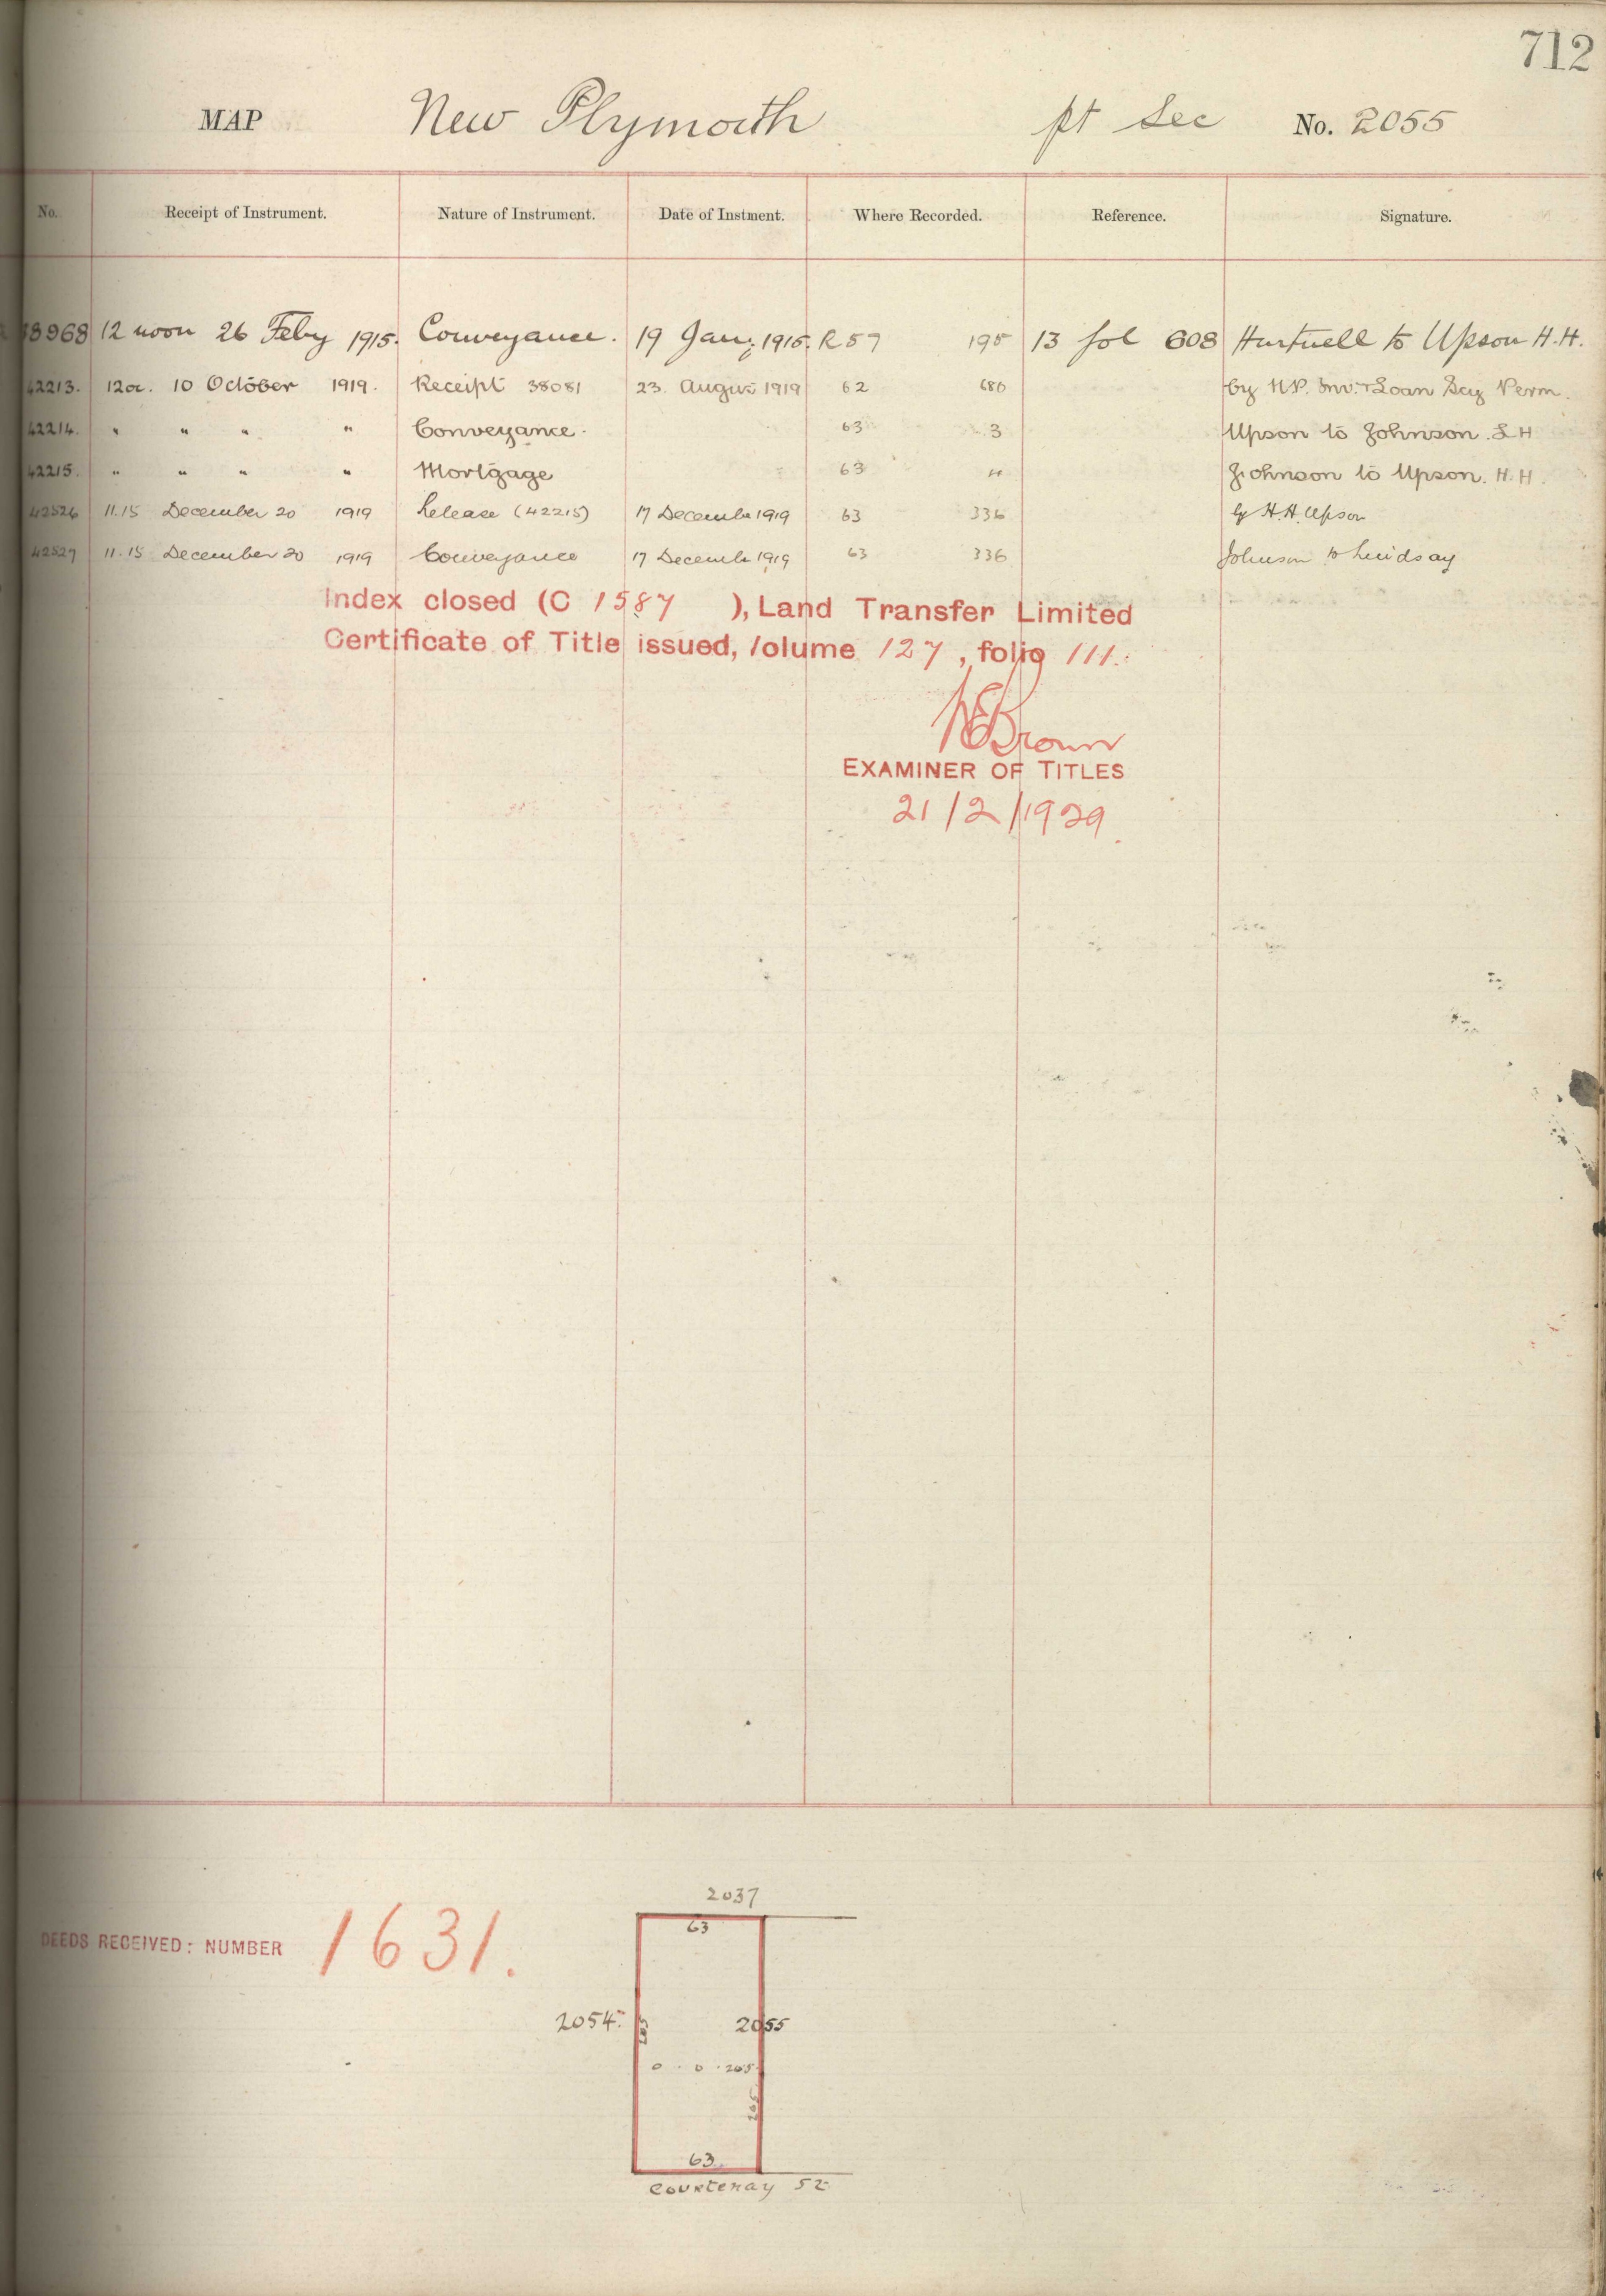 712
MAP New Plymouth pt Sec No. 2055
No. Receipt of Instrument. Nature of Instrument. Date of Instment. Where Recorded. Reference. Signature.
38968 12 noon 26 Feby 1915. Conveyance. 19 Jany. 1915. R 57 195 13 fol 608 to Upson H.H.
42213. 12oc. 10 October 1919. Receipt 38081 23. August 1919 62 686 by N.P. Inv. & Loan Perm.
42214. " " " " Conveyance. 63 3 Upson to Johnson.
42215. " " " " Mortgage 63 4 Johnson to Upson. H.H.
42526 11.15 December 20 1919 Release (42215) 17 December 1919 63 336 by H.H. Upson
42527 11.15 December 20 1919 Conveyance 17 December 1919 63 336 Johnson to Lindsay
Index closed (C 1587 ), Land Transfer Limited
Certificate of Title issued, Volume 127, folio 111.
Brown
EXAMINER OF TITLES
21/2/1929
2037
63
DEEDS RECEIVED: NUMBER 1631.
2054. 2055
0 . 0 . 20.5
63
Courtenay St